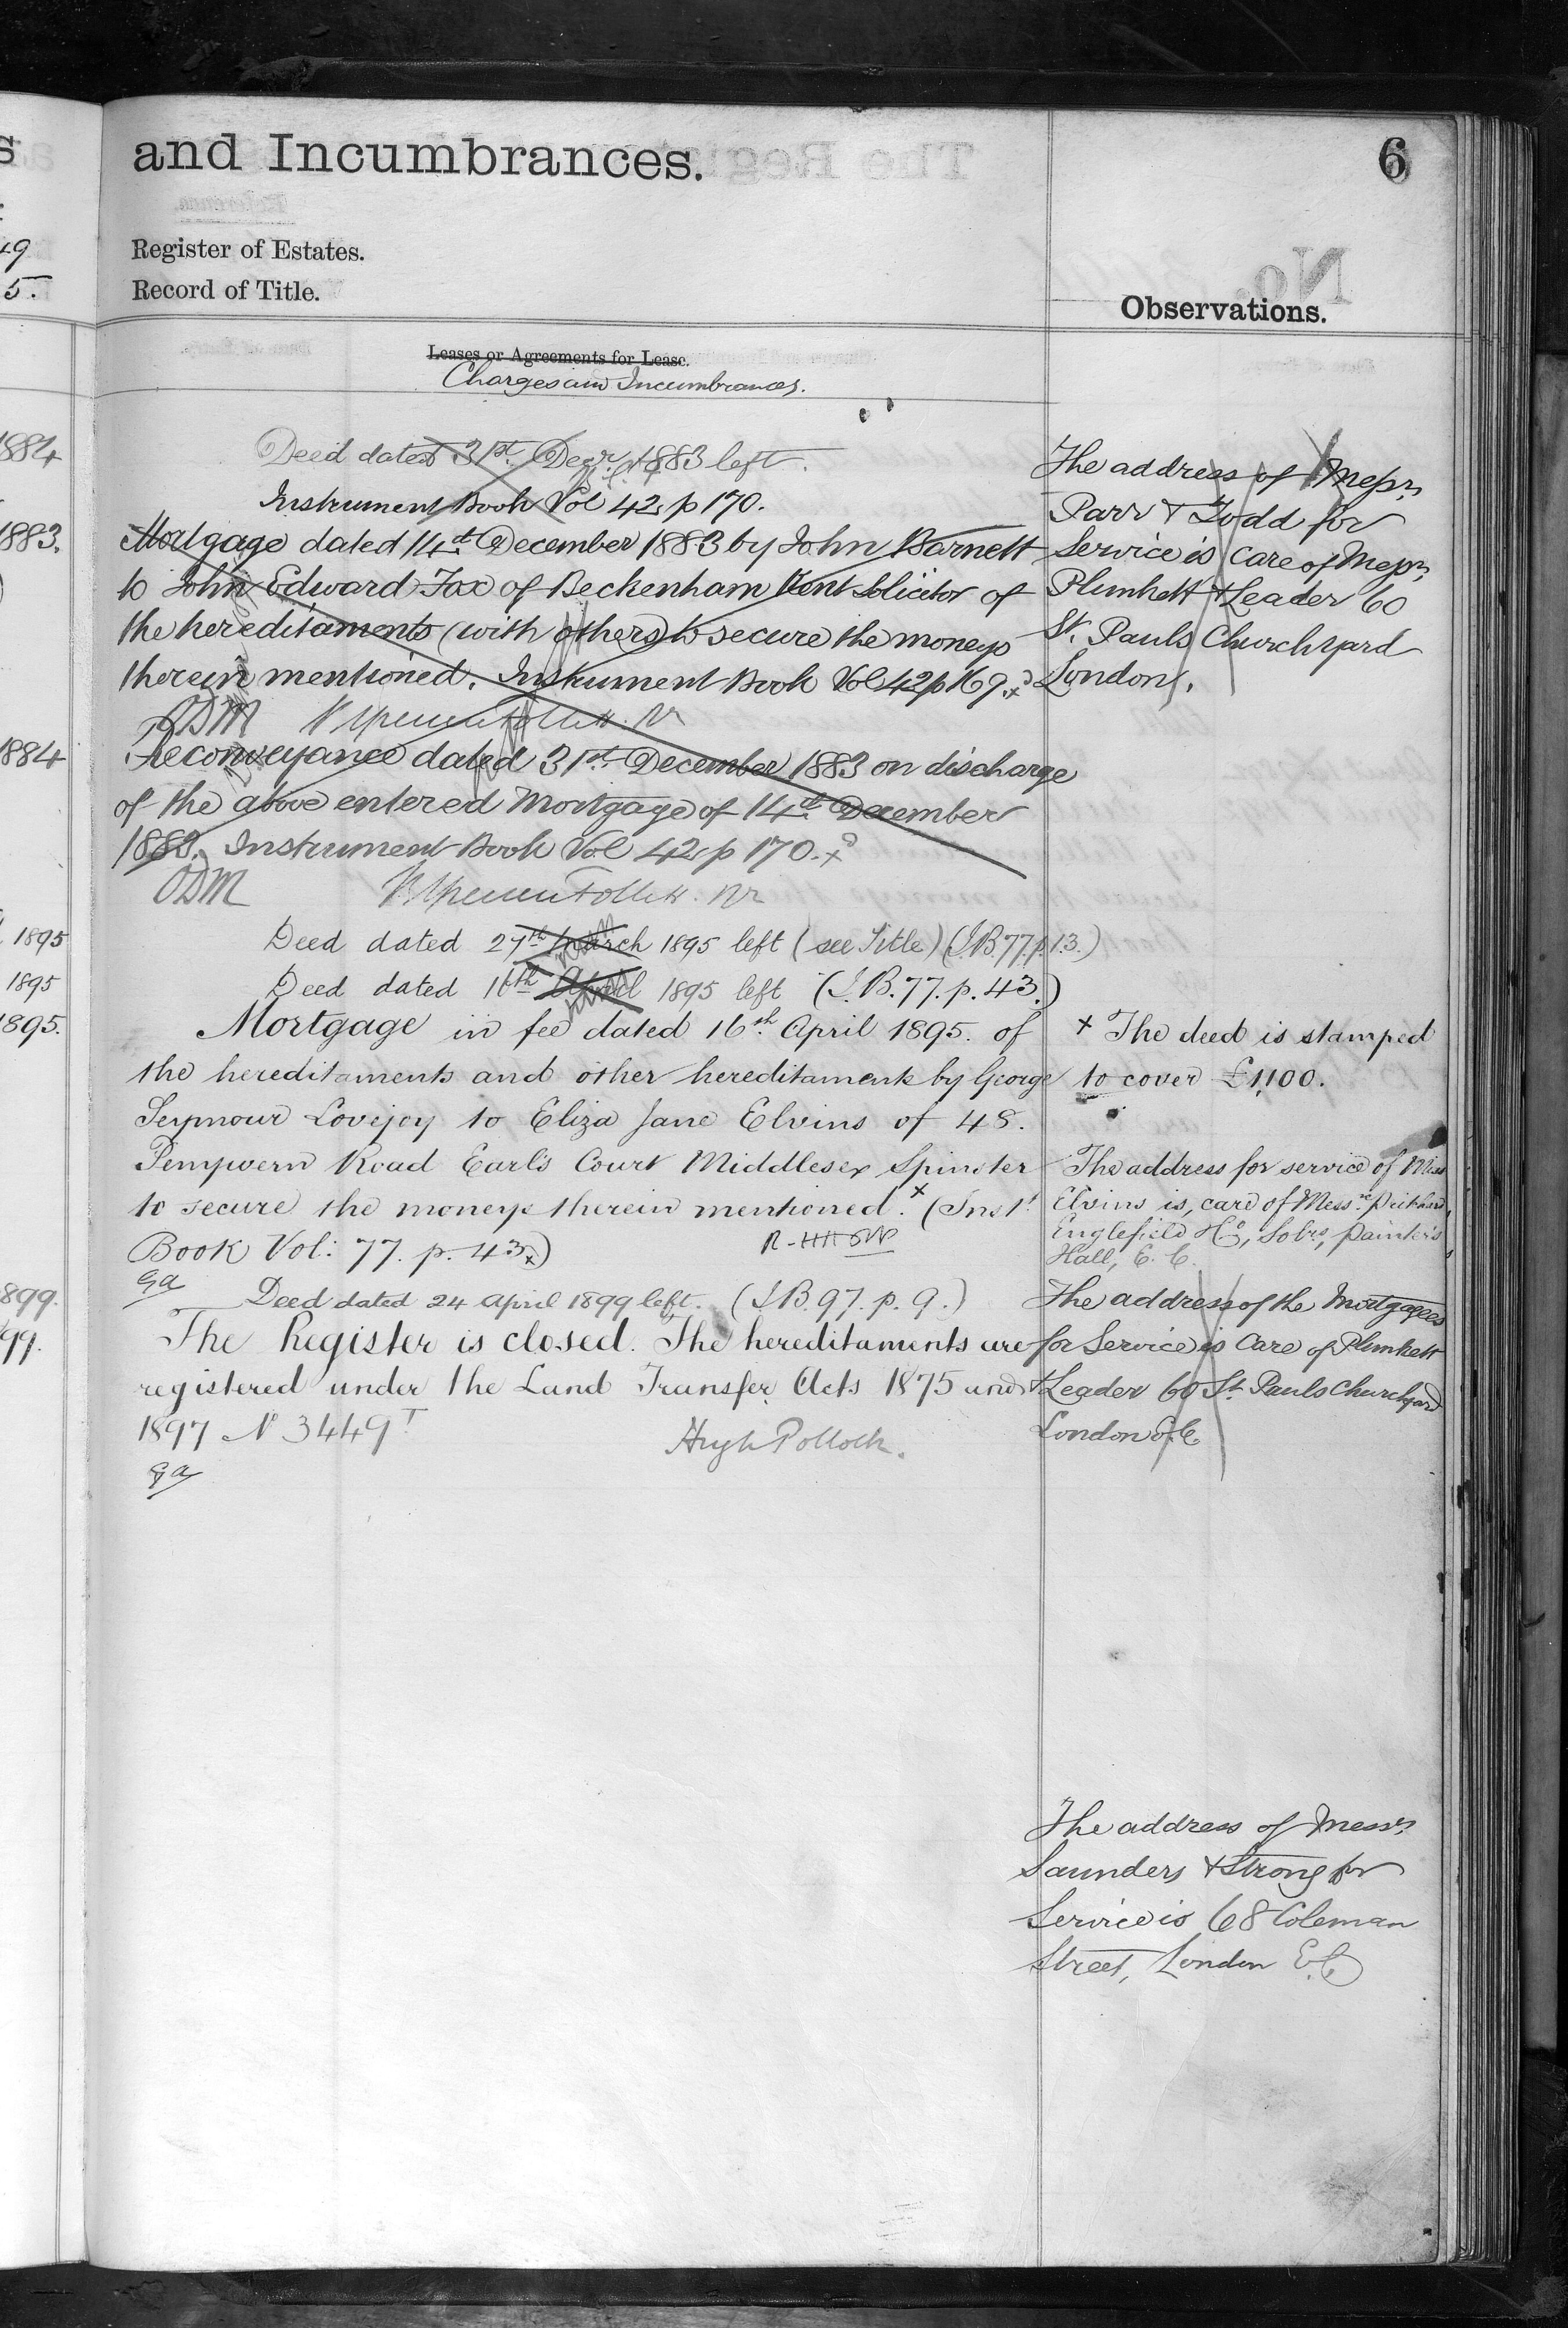 and Incumbrances.
6
Register of Estates.
Record of Title.
Observations.
Leases or Agreements for Lease.
Charges and Incumbrances.
Deed dated 31st. Decr. 1883 left.
Instrument Book Vol 42 p 170.
Mortgage dated 14th December 1883 by John Barnett
to John Edward Fox of Beckenham Kent Solicitor of
the hereditaments (with others) to secure the moneys
therein mentioned. Instrument Book Vol 42 p 169.
ODM
Reconveyance dated 31st December 1883 on discharge
of the above entered Mortgage of 14th December
1883. Instrument Book Vol 42 p 170.
ODM
Deed dated 27th March 1895 left (see Title) (I.B. 77. p. 13.)
Deed dated 16th April 1895 left (I.B. 77. p. 43.)
Mortgage in fee dated 16th April 1895. of
the hereditaments and other hereditaments by George
Seymour Lovejoy to Eliza Jane Elvins of 48.
Penywern Road Earl's Court Middlesex Spinster
to secure the moneys therein mentioned. x (Inst.
Book Vol: 77. p. 43x)
Ga
Deed dated 24 April 1899 left. (I.B. 97. p. 9.)
The Register is closed. The hereditaments are
registered under the Land Transfer Acts 1875 and
1897 No 3449
Hugh Pollock.
Ga
The address of Messrs
Parr & Todd for
Service is care of Messrs
Plunkett & Leader 60
St. Pauls Churchyard
London.
x The deed is stamped
to cover £1,100.
The address for service of Miss
Elvins is, care of Messrs
Englefield & Co, Solrs, Painter's
Hall, E.C.
The address of the Mortgagees
for Service is care of Plunkett
& Leader 60 St. Pauls Churchyard
London E.C.
The address of Messrs
Saunders & Strong for
Service is 68 Coleman
Street, London E.C
1884
1883.
1884
1895
1895
1895.
1899.